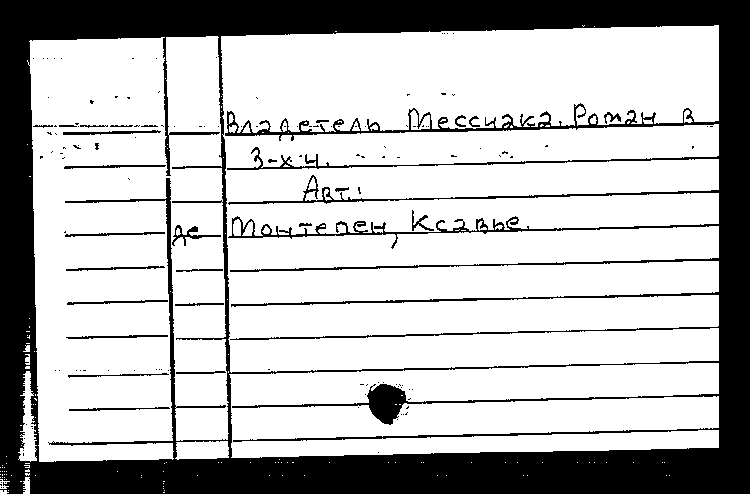 Владетель Мессиака. Роман в
3-х ч.
Авт.:
де Монтепен, Ксавье.